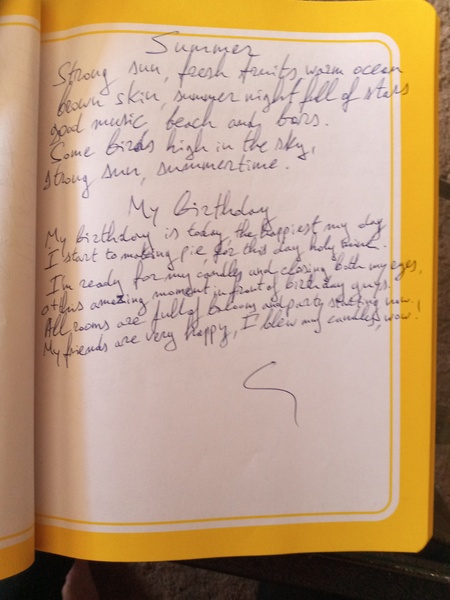 Summer
Strong sun, fresh fruits, warm ocean
brown skin, summer night full of stars
good music, beach and bars.
Some birds high in the sky,
strong sun, summertime.
My Birthday
My birthday is today, the happiest my day
I start to making pie, for this day, holy
I'm ready for my candles and closing both my eyes,
at this amazing moment in front of birthday guys.
All rooms are full of baloons and party starting now.
My friends are very happy, I blew my candles, wow!